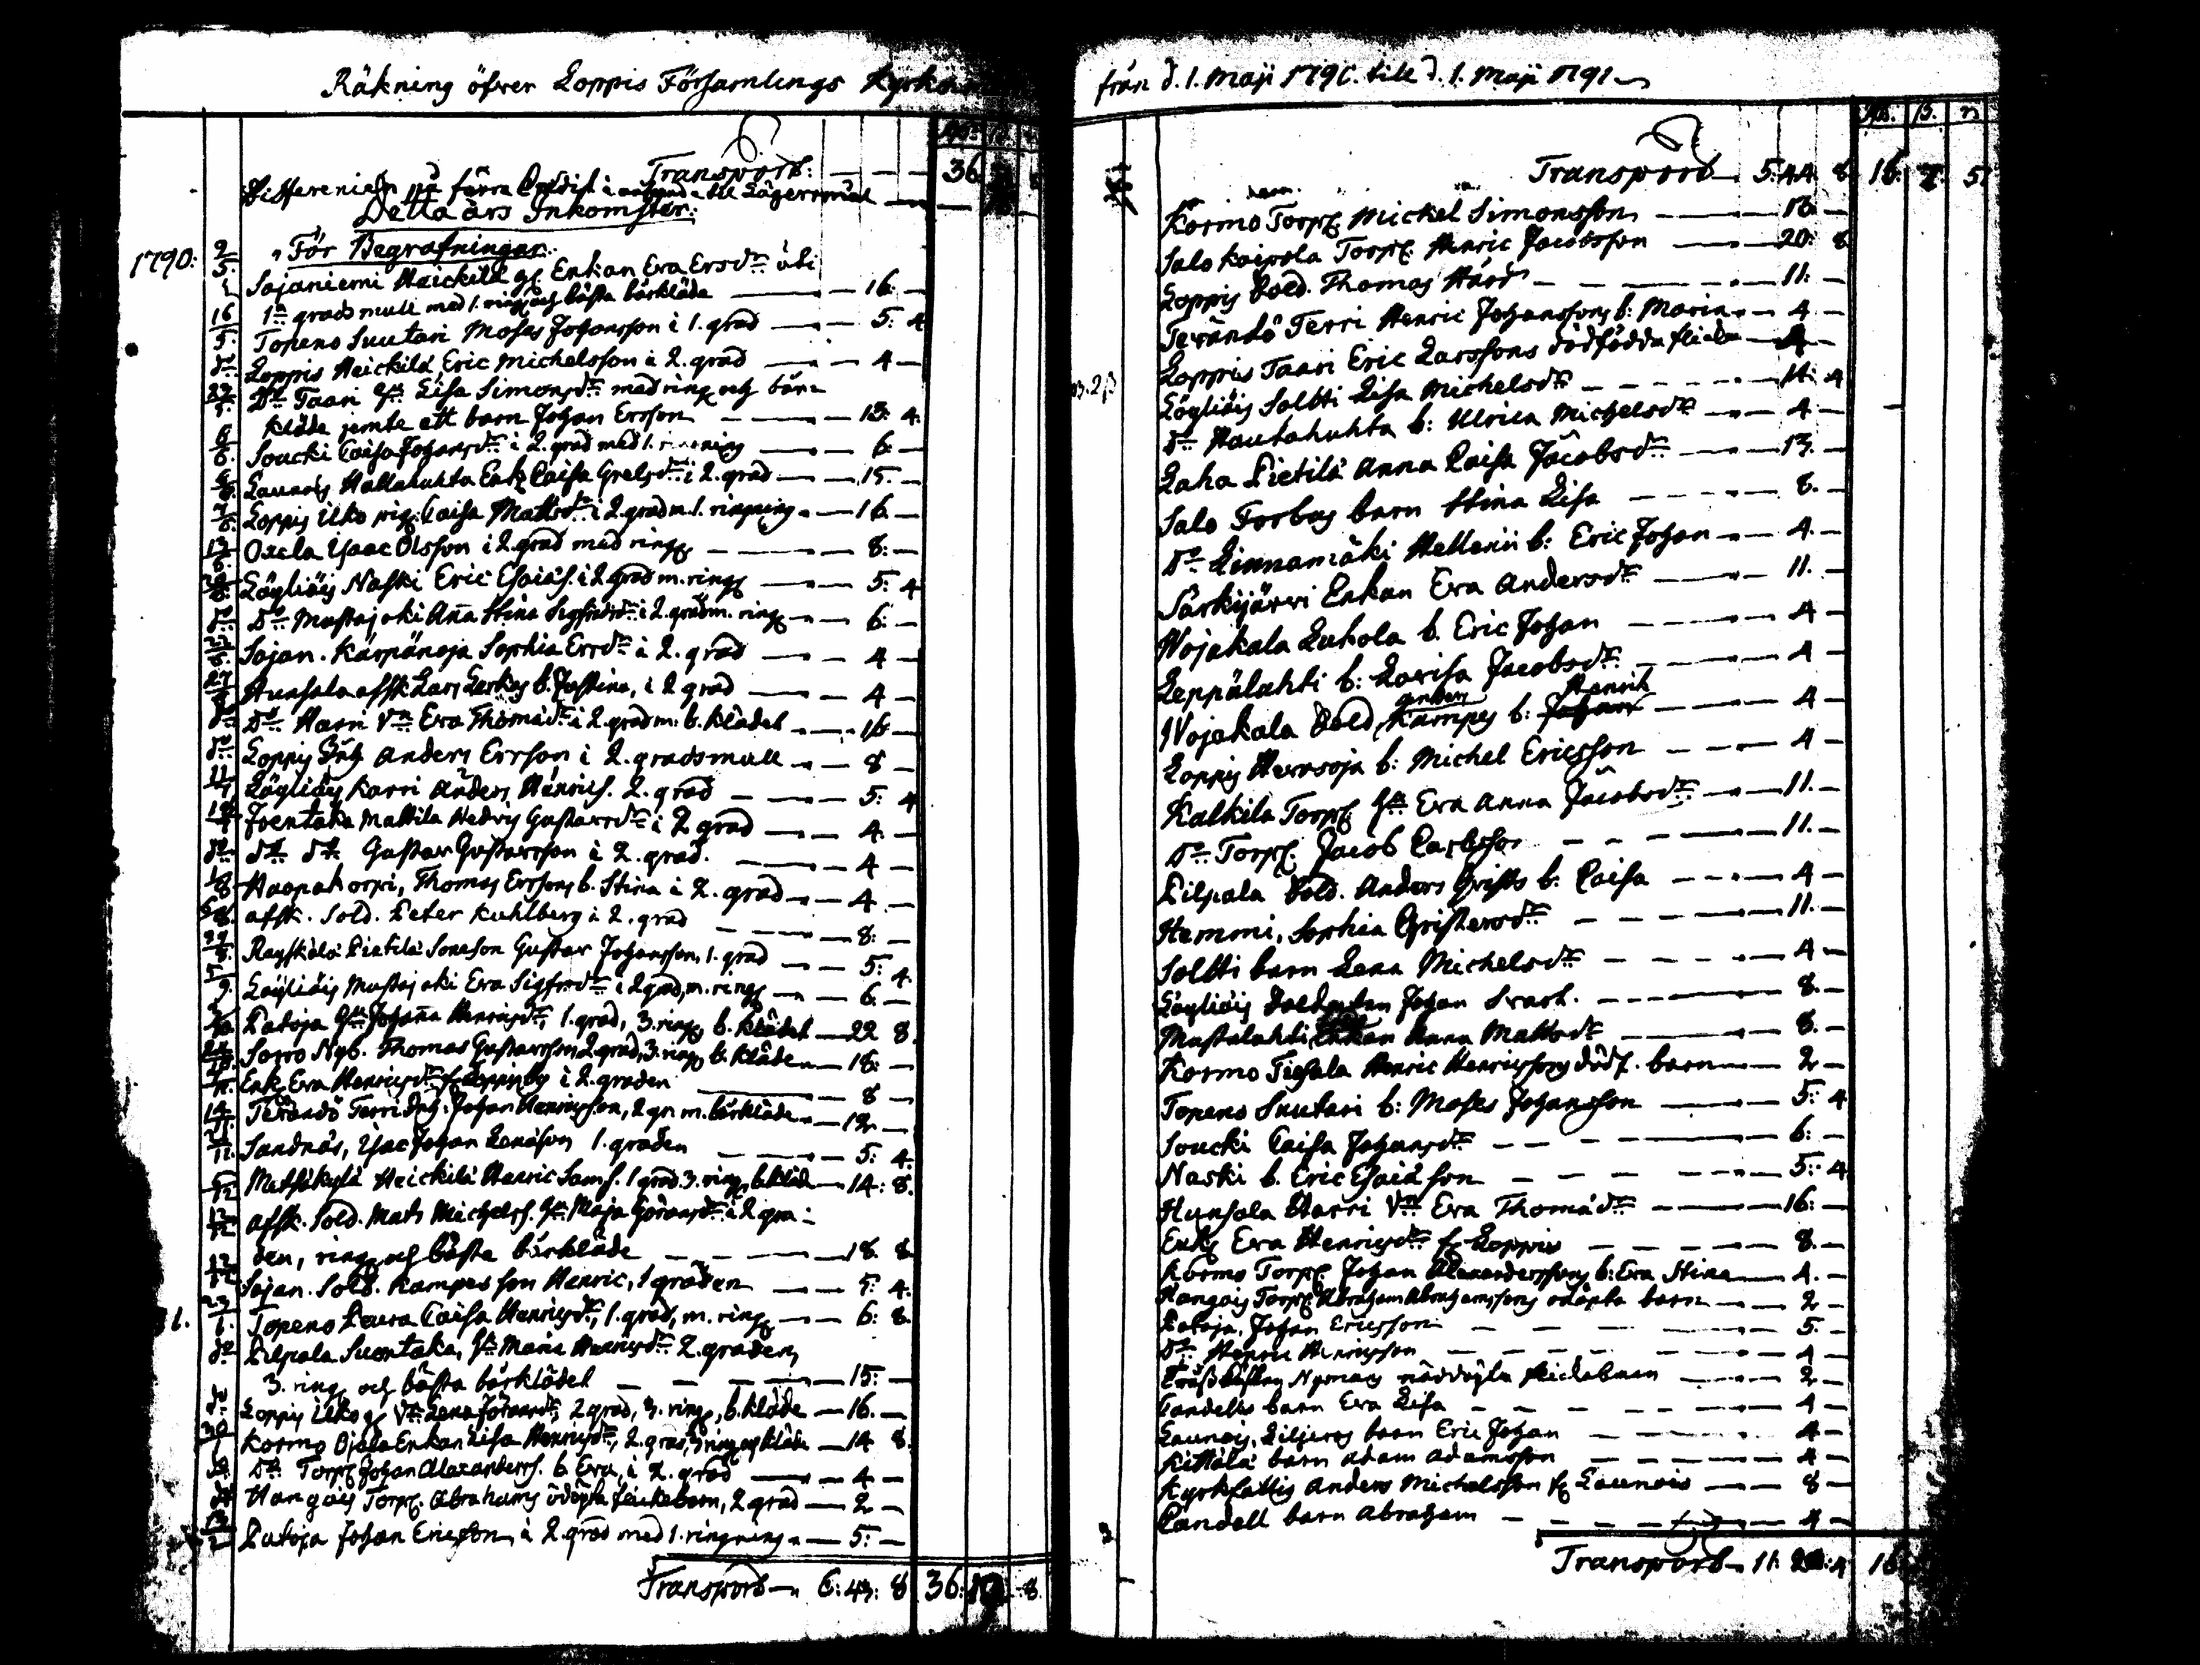 Räkning öfver Loppis Församlings Kyrko
Transport: 36
på förra till Lägersmål
Detta års Inkomster:
För Begrafningar:
1790: 2/5. Sajaniemi Heickilä Enkan Eva Ersdr uti
1a grads mull med 1. ringn och bästa bårkläde 16. —
16/5. Topeno Suutari Moses Johansson i 1. grad 5: 4
do Loppis Heickilä Eric Michelsson i 2. grad 4 —
Do Taari Lisa Simonsdr med ring och bår-
kläde jemte ett barn Johan Ersson 13: 4.
Soucki Caisa Johansdr i 2. grad med 1. ringning 6: —
Launois Hallakuhta Enk Caisa Grelsdr i 2. grad 15. —
Loppis Uko pig. Caisa Mattsdr i 2. grad m. 1. ringning 16 —
13/6. Oxela Isaac Olsson i 2. grad med ring 8: —
Löyliäis Naski Eric Esaias. i 2 grad m. ring 5: 4
do Do Mustajoki Anna Stina Sigfridsdr i 2. grad m. ring 6: —
Sajan. Kärpänoja Sophia Ersdr i 2. grad 4 —
Hunsala afsk. Lars Lerkas b. Justina, i 2 grad 4 —
do Do Harri Vn Eva Thomädr i 2. grad m: b. klädet 16 —
do Loppis Anders Ersson i 2. gradsmull 8 —
11/7 Löyliäis Karri Anders Henrics. 2. grad 5: 4
Joentaka Mattila Hedvig Gustavsdr i 2 grad 4. —
do do do Gustav Gustavsson i 2. grad. 4 —
1/8 Haapakorpi, Thomas Erssons b. Stina i 2. grad 4. —
afsk. Sold. Peter Kuhlberg i 2. grad 8: —
Räyskälä Pietilä Soneson Gustav Johansson, 1. grad 5: 4.
5/9 Löyliäis Mustajoki Eva Sigfrsdr i 2 grad, m. ring 6. —
Patoja Johanna Henricsdr, 1. grad, 3. ring b. klädet 22 8.
Sorro Nyb. Thomas Gustavsson 2 grad, 3. ring b. kläde 18: —
Enk Eva Henricsdr fr. Loppis by i 2. graden 8 —
14/11 Terändö Terri Johan Henricsson, 2 gr. m. bårkläde 12 —
Sandnäs, Isac Johan Lenasson 1. graden 5: 4.
Metsäkylä Heickilä Henric Sams. 1 grad 3. ring, b. kläde 14: 8.
12/12 afsk. Sold. Mats Michelss. Maja Göransdr i 2 gra-
den, ring och bästa bårkläde 18. 8
12/12 Sajan. Sold. Kampes son Henric, 1 graden 5. 4.
91. 23/1. Topeno Laura Caisa Henricsdr, 1. grad, m. ring 6: 8.
do Pilpala Suontaka, Maria Henricsdr 2. graden,
3. ring och bästa bårklädet 15: —
do Loppis Uko Vn Lena Göransdr, 2 grad, 3. ring, b. kläde 16. —
30/1 Kormo Ojala Enkan Lisa Henricsdr, 2. grad, 3 ring och kläde 14 8.
do Do Torp Johan Alexanderss. b. Eva, i 2. grad 4 —
do Hangois Torp. Abrahams odöpta flickebarn, 2 grad 2 —
13/2 Patoja Johan Ericsson i 2. grad med 1. ringning 5: —
Transport 6: 43: 8 36: 8.
från d. 1. Maji 1790. till d. 1. Maji 1791
Rds. s. r
Transport 5: 44. 8. 16: 7. 5.
Kormo Torp. Mickel Simonsson 16 —
Salo Kaipola Torp. Henric Jacobsson 20: 8
Loppis Sold. Thomas Hård 11: —
Terändö Terri Henric Johanssons b: Maria 4 —
Loppis Taari Eric Larssons dödfödda flicka 4 —
Löyliäis Soltti Lisa Michelsdr 14: 4
Do Hautahuhta b: Ulrica Michelsdr 4 —
Laha Pietilä Anna Caisa Jacobsdr 13. —
Salo Forbus barn Stina Lisa 8. —
Do Linnamäki Hellerii b: Eric Johan 4. —
Särkijärvi Enkan Eva Andersdr 11. —
Wojakala Luhola b. Eric Johan 4 —
Leppälahti b: Lovisa Jacobsdr 4 —
Wojakala Sold. Kampes b: Henrik 4 —
Loppis Hevosoja b: Michel Ericsson 4 —
Kalkila Torp. Eva Anna Jacobsdr 11. —
Do Torp. Jacob Carlsson 11. —
Pilpala Sold. Anders Grifts b. Caisa 4 —
Hemmi, Sophia Christersdr 11. —
Soltti barn Lena Michelsdr 4 —
Löyliäis Soldaten Johan Svart. 8. —
Mustalahti Enkan Anna Mattsdr 8. —
Kormo Tiesala Henric Henricssons dödf. barn 2 —
Topeno Suutari b: Moses Johansson 5: 4
Soucki Caisa Johansdr 6: —
Naski b. Eric Esaiäson 5: 4
Hunsala Harri Vn Eva Thomädr 16: —
Enk Eva Henricsdr fr Loppis 8. —
Kormo Torp. Johan Alexanderssons b: Eva Stina 4. —
Hangois Torp. Abraham Abrahamssons odöpta barn 2 —
Patoja, Johan Ericsson 5. —
Do Henric Henricsson 4 —
Nymans nöddöpta flickebarn 2 —
Tandells barn Eva Lisa 4 —
Launois, Liljeros barn Eric Johan 4 —
Kittälä barn Adam Adamsson 4 —
Kyrkfattig Anders Michelsson fr Launois 8 —
Pandell barn Abraham 4 —
Transport 11: 4 16